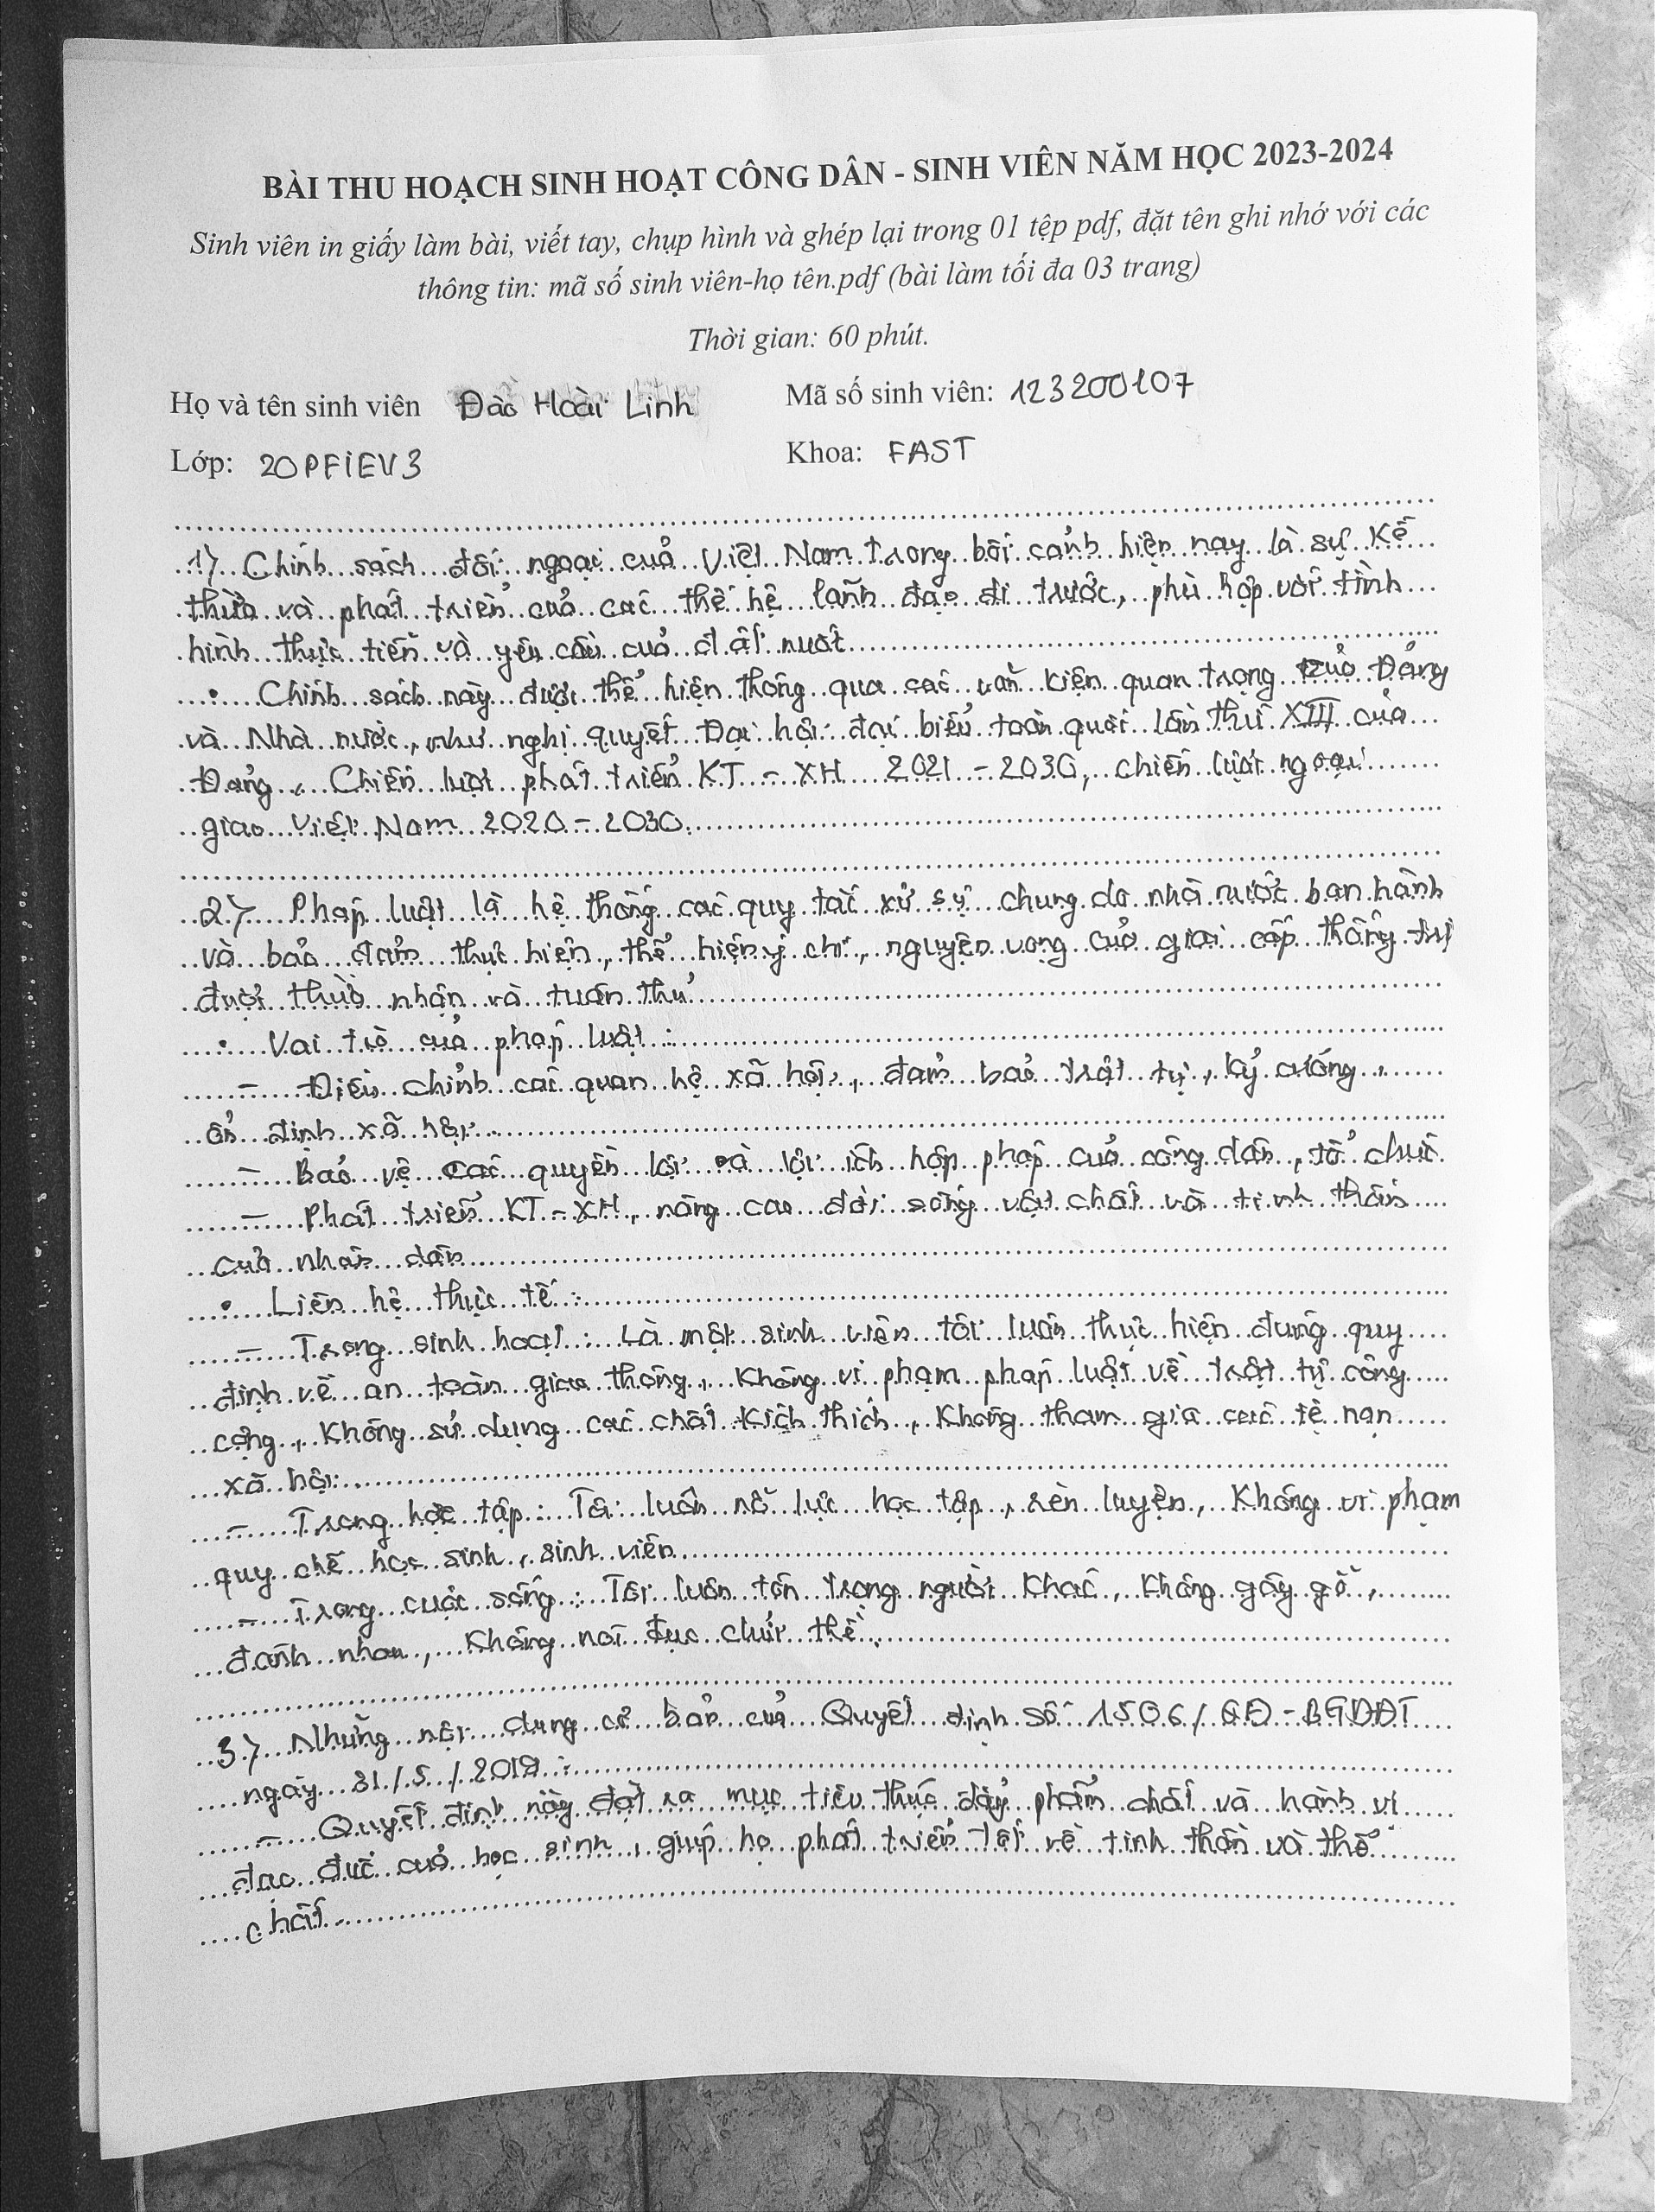 BÀI THU HOẠCH SINH HOẠT CÔNG DÂN - SINH VIÊN NĂM HỌC 2023-2024
Sinh viên in giấy làm bài, viết tay, chụp hình và ghép lại trong 01 tệp pdf, đặt tên ghi nhớ với các
thông tin: mã số sinh viên-họ tên.pdf (bài làm tối đa 03 trang)
Thời gian: 60 phút.
Họ và tên sinh viên Đào Hoài Linh Mã số sinh viên: 123200107
Lớp: 20PFIEV3 Khoa: FAST
1) Chính sách đối ngoại của Việt Nam trong bối cảnh hiện nay là sự kế
thừa và phát triển của các thế hệ lãnh đạo đi trước, phù hợp với tình
hình thực tiễn và yêu cầu của đất nước
• Chính sách này được thể hiện thông qua các văn kiện quan trọng của Đảng
và Nhà nước, như nghị quyết Đại hội đại biểu toàn quốc lần thứ XIII của
Đảng, Chiến lược phát triển KT - XH 2021 - 2030, chiến lược ngoại
giao Việt Nam 2020 - 2030.
2) Pháp luật là hệ thống các quy tắc xử sự chung do nhà nước ban hành
và bảo đảm thực hiện, thể hiện ý chí, nguyện vọng của giai cấp thống trị
được thừa nhận và tuân thủ
• Vai trò của pháp luật :
- Điều chỉnh các quan hệ xã hội, đảm bảo trật tự, kỷ cương,
ổn định xã hội.
- Bảo vệ các quyền lợi và lợi ích hợp pháp của công dân, tổ chức
- Phát triển KT - XH, nâng cao đời sống vật chất và tinh thần
của nhân dân
• Liên hệ thực tế :
- Trong sinh hoạt : Là một sinh viên tôi luôn thực hiện đúng quy
định về an toàn giao thông, không vi phạm pháp luật về trật tự công
cộng, không sử dụng các chất kích thích, không tham gia các tệ nạn
xã hội.
- Trong học tập : Tôi luôn nỗ lực học tập, rèn luyện, không vi phạm
quy chế học sinh, sinh viên
- Trong cuộc sống : Tôi luôn tôn trọng người khác, không gây gổ,
đánh nhau, không nói tục chửi thề.
3) Những nội dung cơ bản của Quyết định số 1506/QĐ-BGDĐT
ngày 31/5/2019 :
- Quyết định này đặt ra mục tiêu thúc đẩy phẩm chất và hành vi
đạo đức của học sinh, giúp họ phát triển tốt về tinh thần và thể
chất.